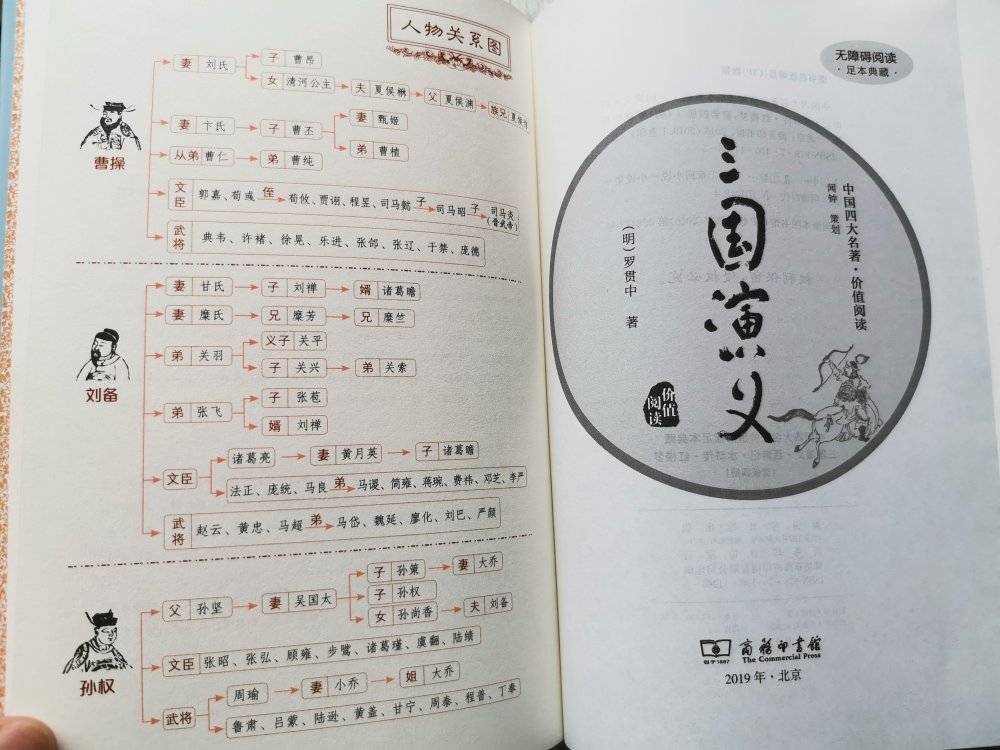 人物关系图
曹操
妻 刘氏 子 曹昂
女 清河公主 夫 夏侯楙 父 夏侯渊 族兄 夏侯惇
妻 卞氏 子 曹丕 妻 甄姬
弟 曹植
从弟 曹仁 弟 曹纯
文臣 郭嘉、荀彧 侄 荀攸、贾诩、程昱、司马懿 子 司马昭 子 司马炎(晋武帝)
武将 典韦、许褚、徐晃、乐进、张郃、张辽、于禁、庞德
刘备
妻 甘氏 子 刘禅 婿 诸葛瞻
妻 糜氏 兄 糜芳 兄 糜竺
弟 关羽 义子 关平
子 关兴 弟 关索
弟 张飞 子 张苞
婿 刘禅
文臣 诸葛亮 妻 黄月英 子 诸葛瞻
法正、庞统、马良 弟 马谡、简雍、蒋琬、费祎、邓芝、李严
武将 赵云、黄忠、马超 弟 马岱、魏延、廖化、刘巴、严颜
孙权
父 孙坚 妻 吴国太 子 孙策 妻 大乔
子 孙权
女 孙尚香 夫 刘备
文臣 张昭、张弘、顾雍、步骘、诸葛瑾、虞翻、陆绩
武将 周瑜 妻 小乔 姐 大乔
鲁肃、吕蒙、陆逊、黄盖、甘宁、周泰、程普、丁奉
无障碍阅读
·足本典藏·
中国四大名著·价值阅读
闻钟 策划
三国演义
(明)罗贯中 著
价值阅读
商务印书馆
创于1897
The Commercial Press
2019年·北京